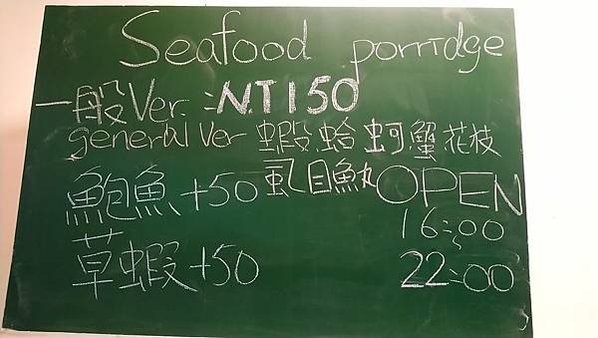 Seafood porridge
一般Ver.:NT150
general Ver 蝦蛤蚵蟹花枝
虱目魚丸
鮑魚+50
OPEN
16:00
草蝦+50
22:00